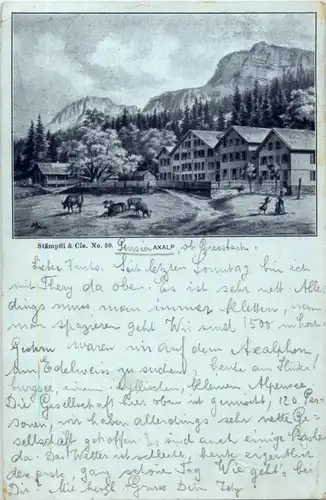 AXALP
Stämpfli & Cie. No. 50. Pension ob Giessbach.
Liebe Seit letzten Sonntag bin ich
mit da oben. Es ist sehr nett Aller
dings muss man immer klettern, wenn
man spazieren geht Wir sind 1500 m hoch
Gestern waren wir auf dem Axalphorn
um Edelweiss zu suchen, heute am Hinter
burgsee, einem idyllischen, kleinen Alpensee
Die Gesellschaft hier oben ist gemischt, 120 Per
sonen, wir haben allerdings sehr nette Ge
sellschaft getroffen. Es sind auch einige Basler
da. Das Wetter ist schlecht, heute eigentlich
der erste, ganz schöne Tag Wie geht's bei
Dir? Mit herzl Gruss Dein